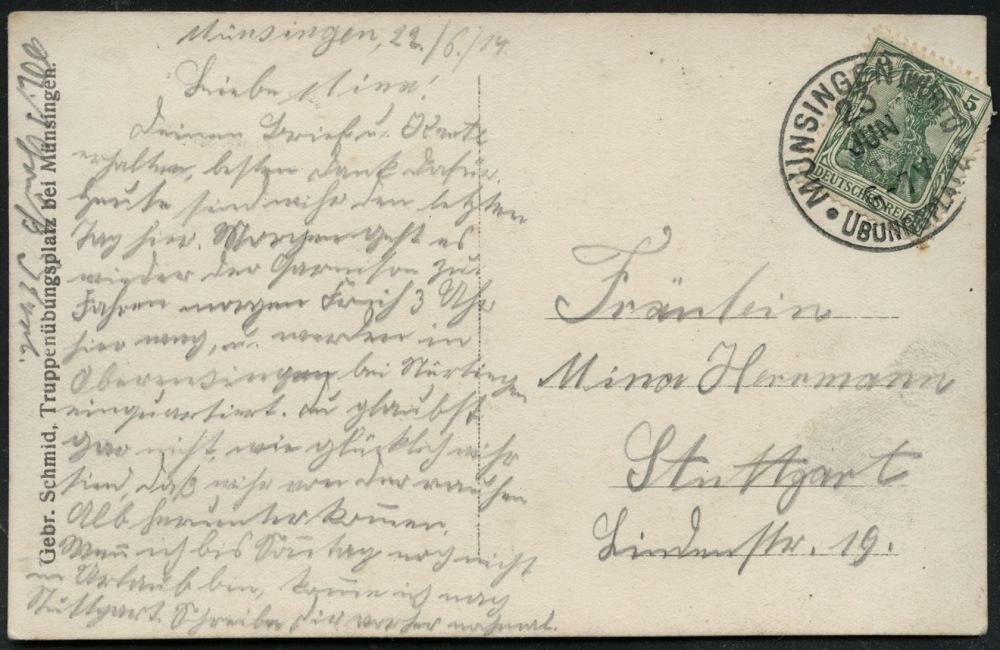 Münsingen, 22./6./14.
Liebe Mina!
Deinen Brief u. Karte
erhalten, besten Dank dafür.
Heute sind wihr den letzten
Tag hier. Morgen geht es
wieder der Garnison zu.
Fahren morgen Früh 3 Uhr
hier weg, u. werden in
Oberensingen bei Nürtingen
einquartiert. Du glaubst
gar nicht, wie glücklich wihr
sind, daß wihr von der rauhen
Alb herunter kom̅en.
Wen̅ ich bis Son̅tag noch nicht
in Urlaub bin, kom̅e ich nach
Stuttgart. Schreibe dir vorher nochmal.
Gebr. Schmid, Truppenübungsplatz bei Münsingen.
MÜNSINGEN (WÜRTT)
22
JUN
6-7
ÜBUNGSPLATZ
5
DEUTSCHES REICH
Fräulein
Mina Herrmann
Stuttgart
Lindenstr. 19.